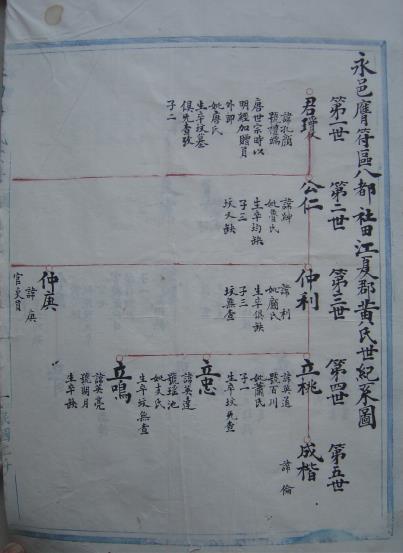 永邑膺符區八都社田江夏郡黄氏世紀系圖
第一世
君瓊
諱孔顔
號禮端
唐世宗時以
明經加贈員
外郎
妣唐氏
生卒坟墓
俱先査改
子二
第二世
公仁
諱紳
妣曹氏
生卒均缺
子三
坟失缺
第三世
仲利
諱利
妣廖氏
生卒俱缺
子三
坟無查
仲庚
諱庚
官吏員
第四世
立桃
諱英道
號百川
妣蕭氏
子一
生卒坟失查
立忠
諱英達
號瑶池
妣文氏
生卒坟無查
立鳴
諱英亮
號朗月
生卒缺
第五世
成楷
諱倫